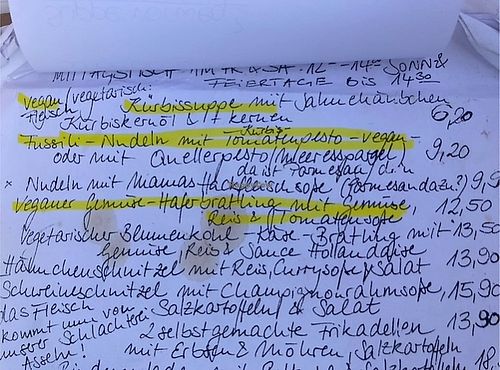 MITTAGSTISCH 12-14 SONN&
FEIERTAGE BIS 14 30
vegan/vegetarisch:
Kürbissuppe mit Sahnehäubchen
Kürbiskernöl & kernen 6,20
Kürbis
Fussili-Nudeln mit Tomatenpesto-vegan-
oder mit Quellerpesto (Meeresspargel) 9,20
da ist Parmesan drin
x Nudeln mit Mamas Hackfleischsoße (Parmesan dazu?) 9,9
veganer Gemüse-Haferbratling mit Gemüse, 12,50
Reis & Tomatensoße
Vegetarischer Blumenkohl-Käse-Bratling mit 13,50
Gemüse, Reis & Sauce Hollandaise
Hähnchenschnitzel mit Reis, Currysoße & Salat 13,90
Schweineschnitzel mit Champignonrahmsoße, 15,90
das Fleisch Salzkartoffeln & Salat
kommt von
unserer Schlachterei 2 selbstgemachte Frikadellen 13,90
Assehn! mit Erbsen & Möhren, Salzkartoffeln